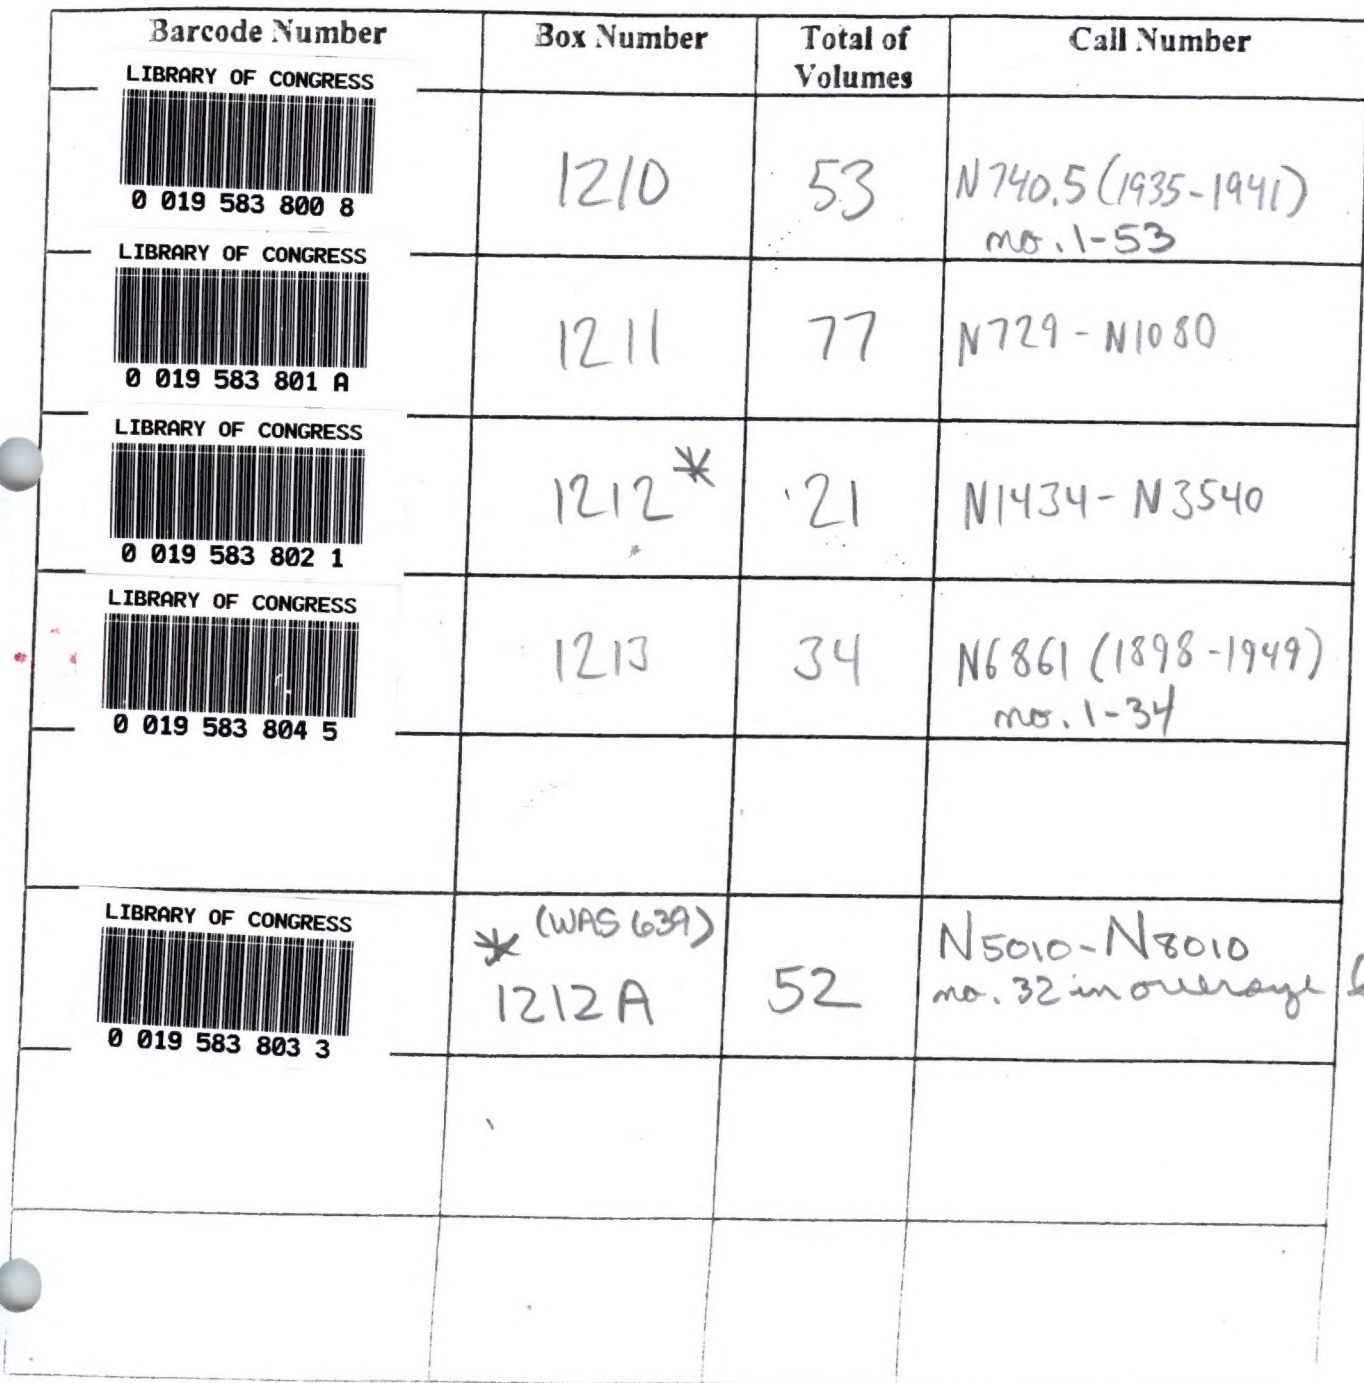 Barcode Number Box Number Total of Volumes Call Number
LIBRARY OF CONGRESS
0 019 583 800 8
1210 53 N740.5 (1935-1941)
no. 1-53
LIBRARY OF CONGRESS
0 019 583 801 A
1211 77 N729 - N1080
LIBRARY OF CONGRESS
0 019 583 802 1
1212* 21 N1434 - N3540
LIBRARY OF CONGRESS
0 019 583 804 5
1213 34 N6861 (1898-1949)
no. 1-34
LIBRARY OF CONGRESS
0 019 583 803 3
(WAS 639)
* 1212A 52 N5010-N8010
no. 32 in